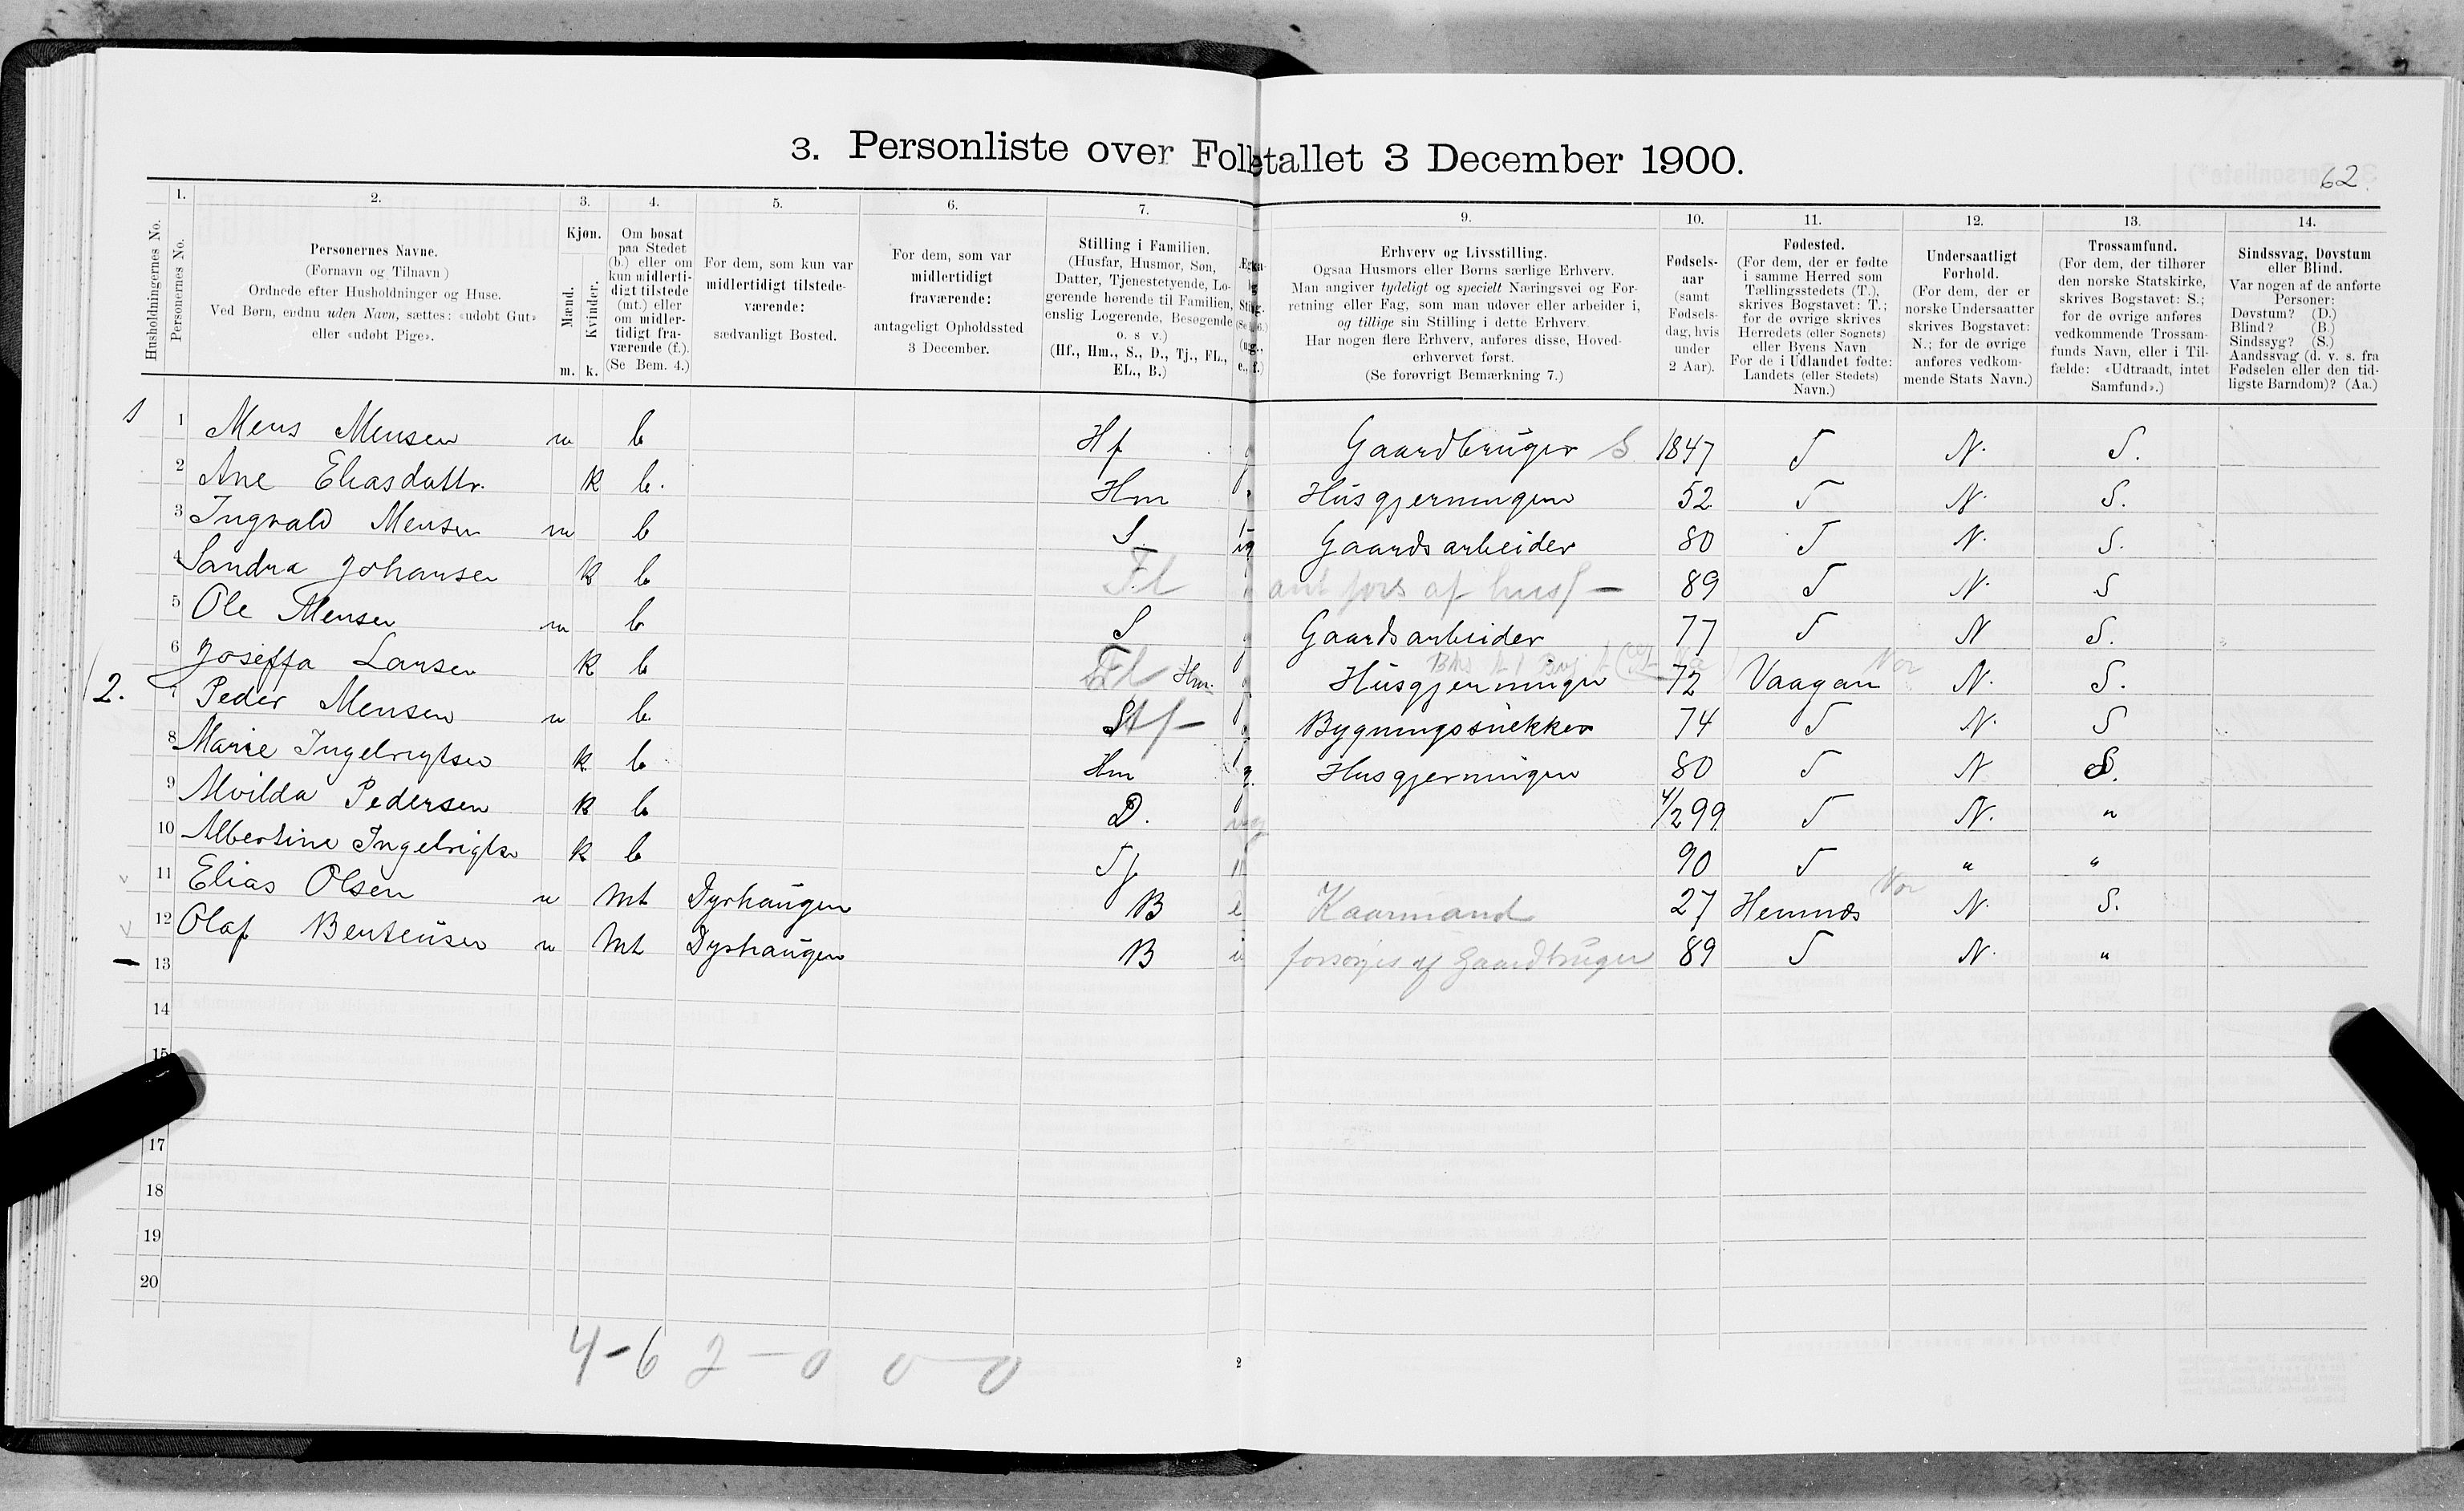 3. Personliste over Folketallet 3 December 1900.
62.
Husholdningernes No.
1. Personernes No.
2. Personernes Navne. (Fornavn og Tilnavn) Ordnede efter Husholdninger og Huse. Ved Børn, endnu uden Navn, sættes: «udøbt Gut» eller «udøbt Pige».
3. Kjøn. Mænd. m. Kvinder. k.
4. Om bosat paa Stedet (b.) eller om kun midlertidigt tilstede (mt.) eller om midlertidigt fraværende (f.). (Se Bem. 4.)
5. For dem, som kun var midlertidigt tilstedeværende: sædvanligt Bosted.
6. For dem, som var midlertidigt fraværende: antageligt Opholdssted 3 December.
7. Stilling i Familien. (Husfar, Husmor, Søn, Datter, Tjenestetyende, Logerende hørende til Familien, enslig Logerende, Besøgende o. s v.) (Hf., Hm., S., D., Tj., FL., EL., B.)
9. Erhverv og Livsstilling. Ogsaa Husmors eller Børns særlige Erhverv. Man angiver tydeligt og specielt Næringsvei og Forretning eller Fag, som man udøver eller arbeider i, og tillige sin Stilling i dette Erhverv. Har nogen flere Erhverv, anføres disse, Hovederhvervet først. (Se forøvrigt Bemærkning 7.)
10. Fødselsaar (samt Fødselsdag, hvis under 2 Aar).
11. Fødested. (For dem, der er fødte i samme Herred som Tællingsstedets (T.), skrives Bogstavet: T.; for de øvrige skrives Herredets (eller Sognets) eller Byens Navn For de i Udlandet fødte: Landets (eller Stedets) Navn.)
12. Undersaatligt Forhold. (For dem, der er norske Undersaatter skrives Bogstavet: N.; for de øvrige anføres vedkommende Stats Navn.)
13. Trossamfund. (For dem, der tilhører den norske Statskirke, skrives Bogstavet: S.; for de øvrige anføres vedkommende Trossamfunds Navn, eller i Tilfælde: «Udtraadt, intet Samfund».)
14. Sindssvag, Døvstum eller Blind. Var nogen af de anførte Personer: Døvstum? (D.) Blind? (B.) Sindssyg? (S.) Aandssvag (d. v. s. fra Fødselen eller den tidligste Barndom)? (Aa.)
1 1 Mens Mensen m b Hf g Gaardbruger S 1847 T N. S.
2 Ane Eliasdattr. k b. Hm Husgjerningen 52 T N. S.
3 Ingvald Mensen m b S. ug Gaardsarbeider 80 T N. S.
4 Sandra Johansen k b Fl 89 T N. S
5 Ole Mensen m b S g Gaardsarbeider 77 T N S.
6 Joseffa Larsen k b Fl Hm. g Husgjerninger 72 Vaagan Nor N. S.
2. 7 Peder Mensen m b. Hf g Bygningssnekker 74 T N. S
8 Marie Ingebrigtsen k b Hm g. Husgjerningen 80 T N S.
9 Alvilda Pedersen k b D. ug 4/2 99 T N. "
10 Albertine Ingebrigtsn k b Tj 90 T " "
11 Elias Olsen m mt Dyrhaugen B e Kaarmand 27 Hemnæs Nor N. S.
12 Olaf Bentensen m mt Dyrhaugen B u forsørges af Gaardbruger 89 T N. "
13
14
15
17
18
19
20
4-6 2-0 0-0
2